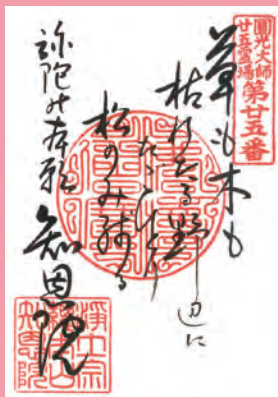 圓光大師
廿五霊場
第廿五番
草も木も
枯れたる野辺に
たゝひとり
松のみ残る
弥陀の本願
知恩院
浄土宗
総本山
知恩院